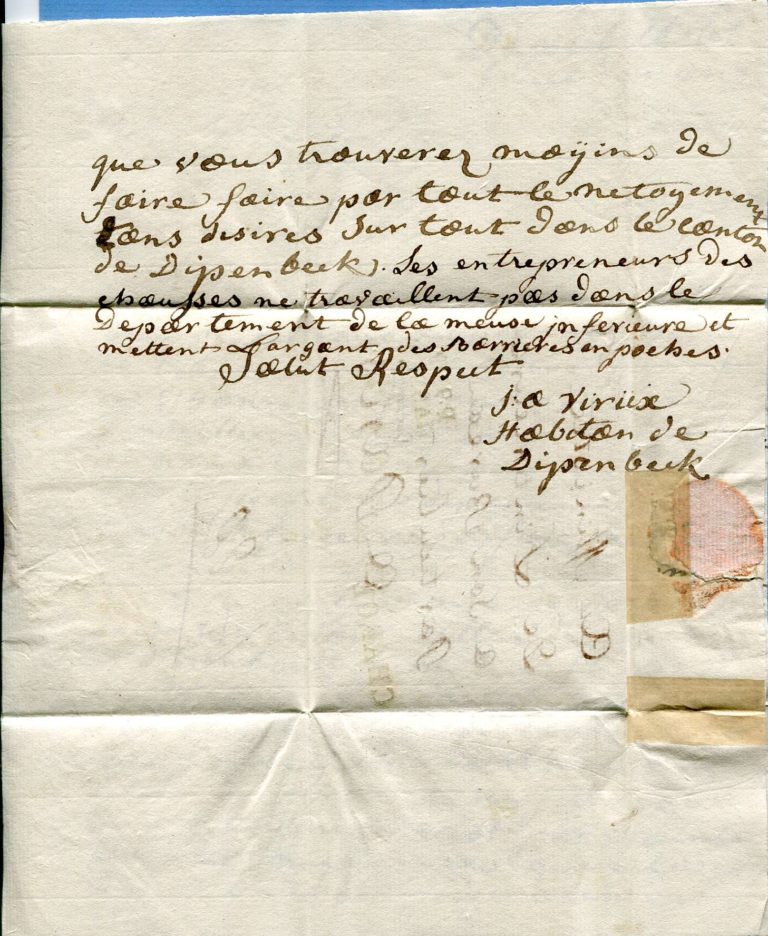 que vous trouverez moÿins de
faire faire par tout le netoyement
tans desires sur tout dans le canton
de Dipenbeck). Les entrepreneurs des
chausses ne travaillent pas dans le
Departement de la meuse inferieure et
mettent L'argant des Barrieres en poches.
Salut Respect
j: a
Habitan de
Dipenbeck